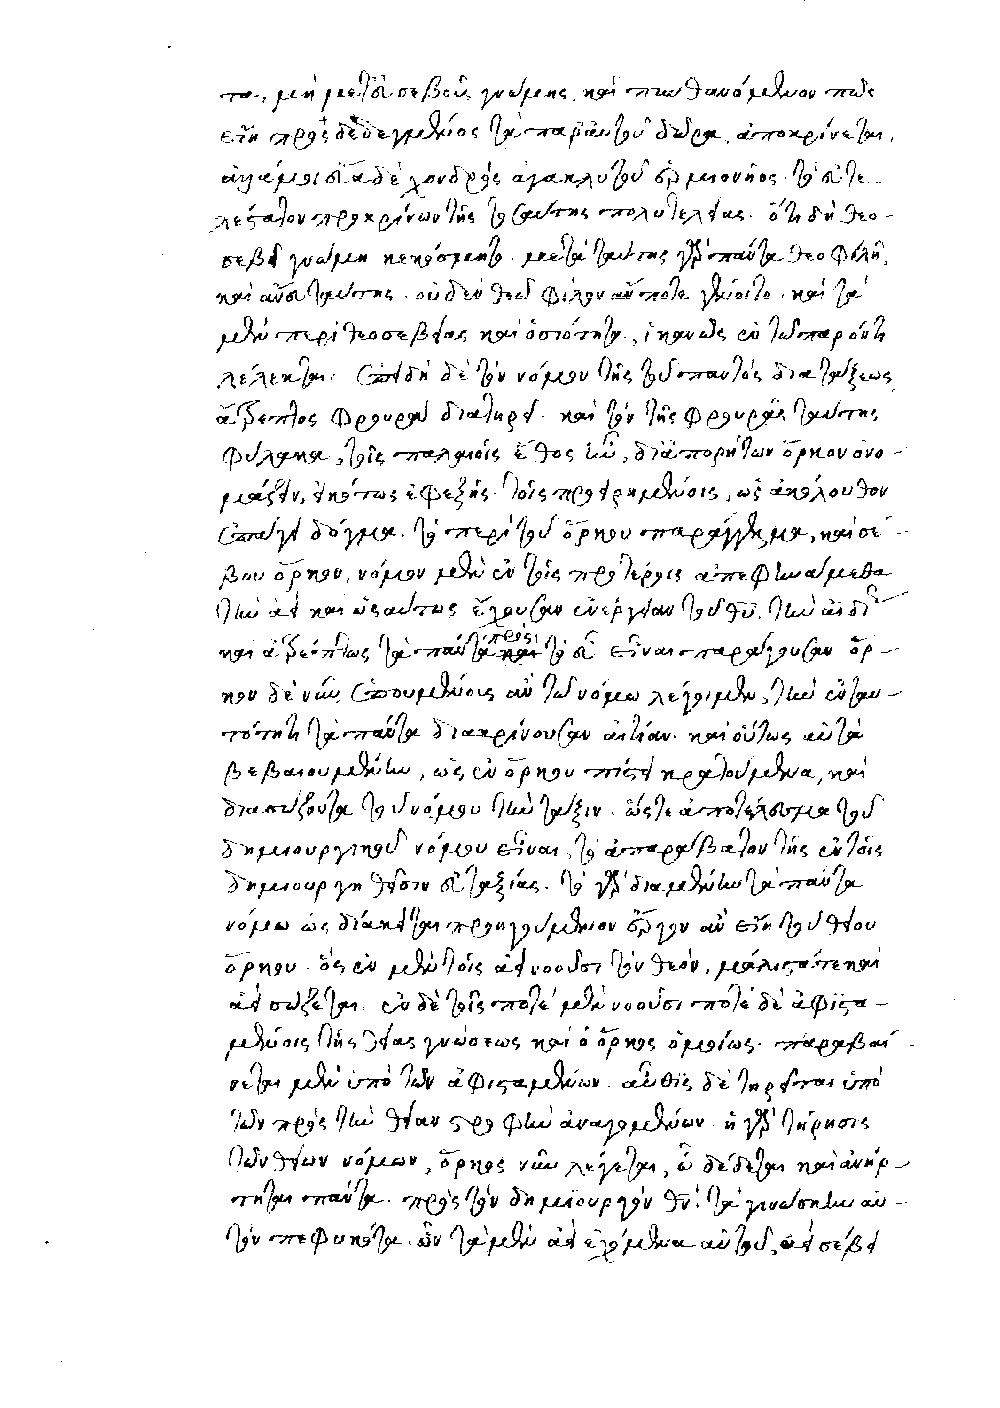 τα, μὴ μετ' εὐσεβοῦς γνώμης. καὶ πυνθανόμενον πῶς
εἴη προσδεδεγμένος τὰ παρ' αὐτοῦ δῶρα, ἀποκρίνεται,
εὔαδε χόνδρος ἀγακλυτοῦ ἑρμιονῆος. τὸ εὐτε-
λέστατον προκρίνων τῆς τοσαύτης πολυτελείας. ὅτι δὴ θεο-
σεβεῖ γνώμη κεκόσμητο. μετὰ ταύτης γὰρ πάντα θεοφιλῆ,
καὶ ἄνευ ταύτης. οὐδὲν θεῶ φίλον ἄν ποτε γένοιτο. καὶ τὰ
μὲν περὶ θεοσεβείας καὶ ὁσιότητος, ἱκανῶς ἐν τῶ παρόντι
λέλεκται. ἐπειδὴ δὲ τὸν νόμον τῆς τοῦ παντὸς διατάξεως
ἄτρεπτος φρουρὰ διατηρεῖ. καὶ τὴν τῆς φρουρᾶς ταύτης
φύλακα, τοῖς παλαιοῖς ἔθος ἦν, δι' ἀπορρήτων ὅρκον ὀνο-
μάζειν, εἰκότως ἐφεξῆς τοῖς προειρημένοις, ὡς ἀκόλουθον
ἐπάγει δόγμα. τὸ περὶ τοῦ ὅρκου παράγγελμα, καὶ σέ-
βου ὅρκον, νόμον μὲν ἐν τοῖς προτέροις ἀπεφηνάμεθα
τὴν ἀεὶ καὶ ὡσαύτως ἔχουσαν ἐνέργειαν τοῦ θεοῦ. τὴν ἀϊδίως
καὶ ἀτρέπτως τὰ πάντα πρὸς τὸ εὖ εἶναι παράγουσαν ὅρ-
κον δὲ νῦν ἑπομένοις ἂν τῶ νόμω λέγοιμεν, τὴν ἐν ταυ-
τότητι τὰ πάντα διακρίνουσαν αἰτίαν. καὶ οὕτως αὐτὰ
βεβαιουμένην, ὡς ἐν ὅρκου πίστει κρατούμενα, καὶ
διασώζοντα τοῦ νόμου τὴν τάξιν. ὥστε ἀποτέλεσμα τοῦ
δημιουργικοῦ νόμου εἶναι, τὸ ἀπαράβατον τῆς ἐν τοῖς
δημιουργηθεῖσιν εὐταξίας. τὸ γὰρ διαμένειν τὰ πάντα
νόμω ὡς διάκειται προηγούμενον ἔργον ἂν εἴη τοῦ θείου
ὅρκου. ὃς ἐν μὲν τοῖς ἀεὶ νοοῦσι τὸν θεόν, μάλιστά τε καὶ
ἀεὶ σώζεται. ἐν δὲ τοῖς ποτὲ μὲν νοοῦσι ποτὲ δὲ ἀφιστα-
μένοις τῆς θείας γνώσεως καὶ ὁ ὅρκος ὁμοίως. παραβαί-
νεται μὲν ὑπὸ τῶν ἀφισταμένων. αὖθις δὲ τηρεῖται ὑπὸ
τῶν πρὸς τὴν θείαν στροφὴν ἀναγομένων. ἡ γὰρ τήρησις
τῶν θείων νόμων, ὅρκος νῦν λέγεται, ᾧ δέδεται καὶ ἀνήρ-
τηται πάντα. πρὸς τὸν δημιουργὸν θεόν. τὰ γινώσκειν αὐ-
τὸν πεφυκότα. ὧν τὰ μὲν ἀεὶ ἐχόμενα αὐτοῦ, ἀεὶ σέβει